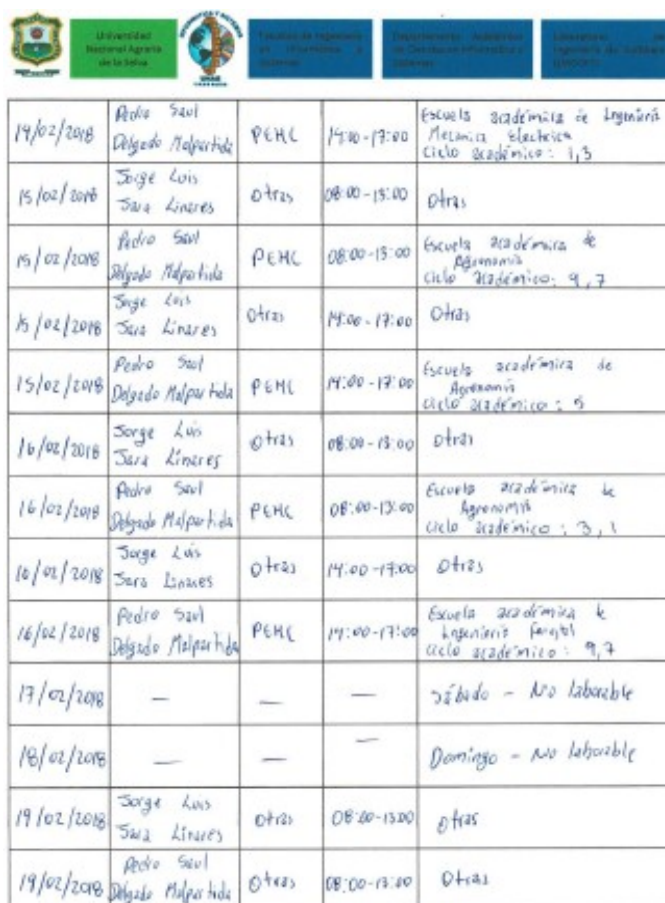 Universidad
Nacional Agraria
de la Selva
14/02/2018
Pedro Saul
Delgado Malpartida
PEHC
14:00-17:00
Escuela académica de Ingeniería
Mecanica Electrica
Ciclo académico: 1,3
15/02/2018
Jorge Luis
Jara Linares
Otras
08:00-13:00
Otras
15/02/2018
Pedro Saul
Delgado Malpartida
PEHC
08:00-13:00
Escuela académica de
Agronomia
Ciclo académico: 9,7
15/02/2018
Jorge Luis
Jara Linares
Otras
14:00-17:00
Otras
15/02/2018
Pedro Saul
Delgado Malpartida
PEHC
14:00-17:00
Escuela académica de
Agronomia
Ciclo académico: 5
16/02/2018
Jorge Luis
Jara Linares
Otras
08:00-13:00
Otras
16/02/2018
Pedro Saul
Delgado Malpartida
PEHC
08:00-13:00
Escuela académica de
Agronomia
Ciclo académico: 3,1
16/02/2018
Jorge Luis
Jara Linares
Otras
14:00-17:00
Otras
16/02/2018
Pedro Saul
Delgado Malpartida
PEHC
14:00-17:00
Escuela académica de
Ingenieria
Ciclo académico: 9,7
17/02/2018
—
—
—
Sábado - No laborable
18/02/2018
—
—
—
Domingo - No laborable
19/02/2018
Jorge Luis
Jara Linares
Otras
08:00-13:00
Otras
19/02/2018
Pedro Saul
Delgado Malpartida
Otras
08:00-13:00
Otras